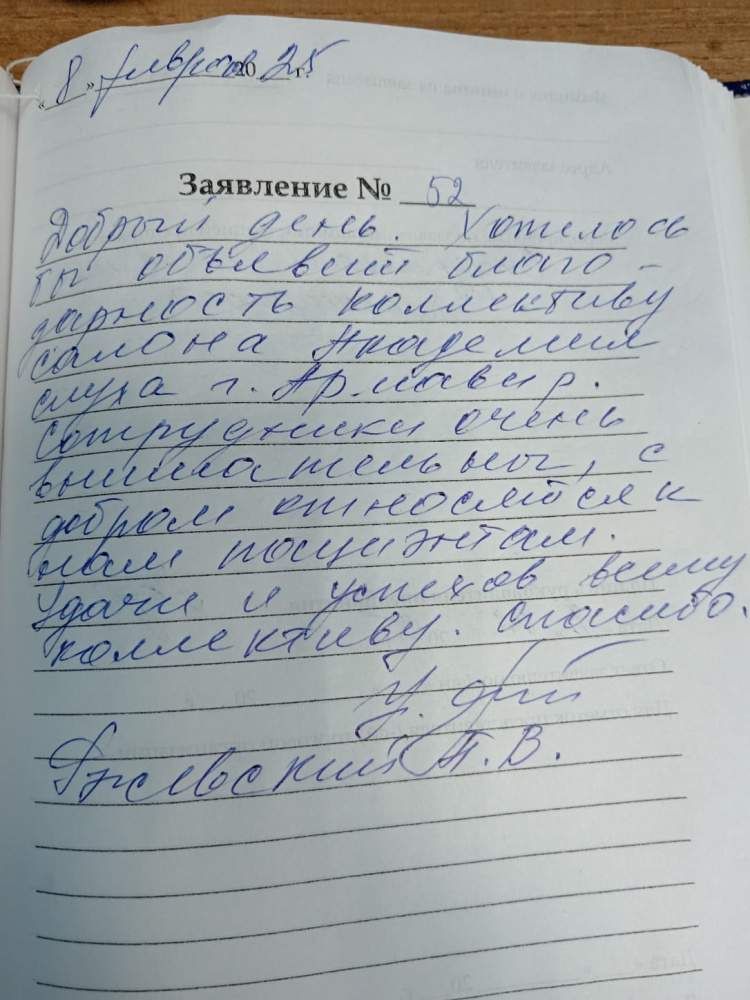 «8» февраля 2025 г.
Заявление № 52
Добрый день. Хотилось
бы объявит благо-
дарность коллективу
салона Академия
слуха г. Армавир.
Сотрудники очень
внимательны, с
добром относятся к
нам пациэнтам.
Удачи и успехов всему
коллективу. Спасибо.
Ржевский Т. В.